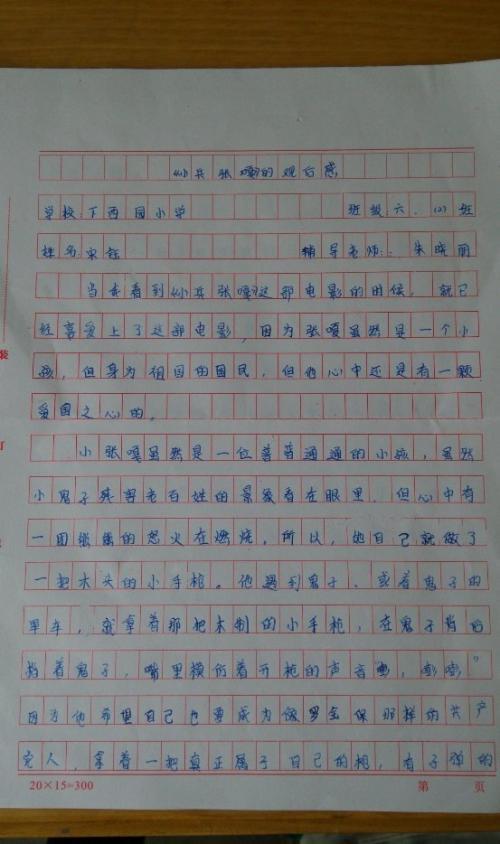 《小兵张嘎》的观后感
学校:下西园小学 班级六.(2)班
姓名:宋钰 辅导老师:朱晓丽
当我看到《小兵张嘎》这部电影的时候,就已
经喜爱上了这部电影,因为张嘎虽然是一个小
孩,但身为祖国的国民,但他心中还是有一颗
爱国之心的。
小张嘎虽然是一位普普通通的小孩,虽然
小鬼子残害老百姓的景象看在眼里,但心中有
一团熊熊的怒火在燃烧,所以,他自己就做了
一把木头的小手枪。他遇到鬼子,或着鬼子的
军车,就拿着那把木制的小手枪,在鬼子背后
指着鬼子,嘴里模仿着开枪的声音嘭,嘭嘭。
因为他希望自己也要成为像罗金保那样的共产
党人,拿着一把真正属于自己的枪,有子弹的
20×15=300 第 页
装
订